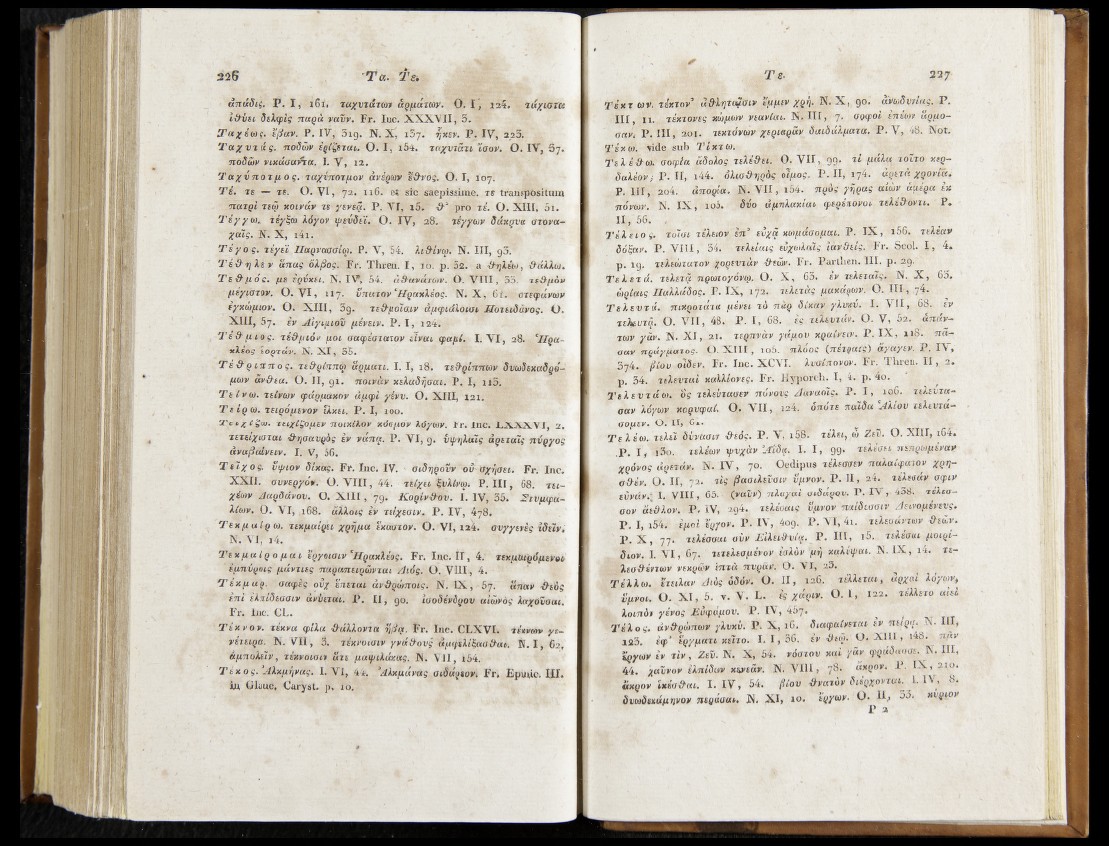 226 Τα. Τε.
ἁπάδις. P. I, 161. ταχυτάτων ἁρμάτων. O. I, 124. τάχιστα
ἰθύει δελφὶς παρὰ ναῦν. Fr. Inc. XXXVII, 3.
Ταχέως. ἔβαν. P. IV, 319. N. X, 137. ἧκεν. P. IV, 223.
Ταχυτάς. ποδῶν ἐρίζεται. O. I, 154. ταχυτᾶτι ἴσον. O. IV, 37.
ποδῶν νικάσαντα. I. V, 12.
Ταχύποτμος. ταχύποτμον ἀνέρων ἔθνος. O. I, 107.
Τέ. τε — τε. O. VI, 72. 116. et sic saepissime. τε transpositum
πατρὶ τεῷ κοινάν τε γενεᾷ. P. VI, 15. θ' pro τέ. O. XIII, 51.
Τέγγω. τέγξω λόγον ψεύδεϊ. O. IV, 28. τέγγων δάκρυα στονα-
χαῖς. N. X, 141.
Τέγος. τέγεϊ Παρνασσίῳ. P. V, 54. λιθίνῳ. N. III, 93.
Τέθηλεν ἅπας ὄλβος. Fr. Thren. I, 10. p. 32. a θηλέω, θάλλω.
Τεθμός. με ἐρύκει. N. IV, 54. ἀθανάτων. O. VIII, 33. τεθμὸν
μέγιστον. O. VI, 117. ὕπατον Ἡρακλέος. N. X, 61. στεφάνων
ἐγκώμιον. O. XIII, 39. τεθμοῖσιν ἀμφιάλοισι Ποτειδᾶνος. O.
XIII, 57. ἐν Αἰγιμιοῦ μένειν. P. I, 124.
Τέθμιος. τέθμιόν μοι σαφέστατον εἶναι φαμί. I. VI, 28. Ἡρα-
κλέος ἑορτάν. N. XI, 35.
Τέθριππος. τεθρίππῳ ἅρματι. I. I, 18. τεθρίππων δυωδεκαδρό-
μων ἄνθεα. O. II, 91. ποινὰν κελαδῆσαι. P. I, 113.
Τείνω. τείνων φάρμακον ἀμφὶ γένυ. O. XIII, 121.
Τείρω. τειρόμενον ἕλκει. P. I, 100.
Τειχίζω. τειχίζομεν ποικίλον κόσμον λόγων. Fr. Inc. LXXXVI, 2.
τετείχισται θησαυρὸς ἐν νάπᾳ. P. VI, 9. ὑψηλαῖς ἀρεταῖς πύργος
ἀναβαίνειν. I. V, 56.
Τεῖχος. ὕψιον δίκας. Fr. Inc. IV. σιδηροῦν οὐ σχήσει. Fr. Inc.
XXII. συνεργόν. O. VIII, 44. τείχει ξυλίνῳ. P. III, 68. τει-
χέων Δαρδάνου. O. XIII, 79. Κορίνθου. I. IV, 35. Στυμφα-
λίων. O. VI, 168. ἄλλοις ἐν τείχεσιν. P. IV, 478.
Τεκμαίρω. τεκμαίρει χρῆμα ἕκαστον. O. VI, 124. συγγενὲς ἰδεῖν.
N. VI, 14.
Τεκμαίρομαι ἔργοισιν Ἡρακλέος. Fr. Inc. II, 4. τεκμαιρόμενοι
ἐμπύροις μάντιες παραπειρῶνται Διός. O. VIII, 4.
Τέκμαρ. σαφὲς οὐχ ἕπεται ἀνθρώποις. N. IX, 57. ἅπαν θεὸς
ἐπὶ ἐλπίδεσσιν ἀνύεται. P. II, 90. ἰσοδένδρου αἰῶνος λαχοῦσαι.
Fr. Inc. CL.
Τέκνον. τέκνα φίλα θάλλοντα ἥβᾳ. Fr. Inc. CLXVI. τέκνων γε-
νέτειρα. N. VII, 3. τέκνοισιν γνάθους ἀμφελίξασθαι. N. I, 62.
ἀμπολεῖν, τέκνοισιν ἅτε μαψιλάκας. N. VII, 154.
Τέκος. Ἀλκμήνας. I. VI, 44. Ἀλκμάνας σιδάρεον. Fr. Epinic. III.
in Glauc. Caryst. p. 10.
Τε. 227
Τέκτων. τέκτον' ἀθληταῖσιν ἔμμεν χρή. N. X, 90. ἀνωδυνίας. P.
III, 11. τέκτονες κώμων νεανίαι. N. III, 7. σοφοὶ ἐπέων ἅρμο-
σαν. P. III, 201. τεκτόνων χεριαρᾶν δαιδάλματα. P. V, 48. Not.
Τέκω. vide sub Τίκτω.
Τελέθω. σοφία ἄδολος τελέθει. O. VII, 99. τί μάλα τοῦτο κερ-
δαλέον; P. II, 144. ὀλισθηρὸς οἶμος. P. II, 174. ἀρετὰ χρονία.
P. III, 204. ἀπορία. N. VII, 154. πρὸς γῆρας αἰὼν ἁμέρα ἐκ
πόνων. N. IX, 105. δύο ἀμπλακίαι φερέπονοι τελέθοντι. P.
II, 56.
Τέλειος. τοῖσι τέλειον ἐπ' εὐχᾷ κωμάσομαι. P. IX, 156. τελέαν
δόξαν. P. VIII, 34. τελείαις εὐχωλαῖς ἰανθείς. Fr. Scol. I, 4.
p. 19. τελεώτατον χορευτὰν θεῶν. Fr. Parthen. III. p. 29.
Τελετά. τελετᾷ πρωτογόνῳ. O. X, 63. ἐν τελεταῖς. N. X, 63.
ὡρίαις Παλλάδος. P. IX, 172. τελετὰς μακάρων. O. III, 74.
Τελευτά. πικροτάτα μένει τὸ πὰρ δίκαν γλυκύ. I. VII, 68. ἐν
τελευτᾷ. O. VII, 48. P. I, 68. ἐς τελευτάν. O. V, 52. ἁπάν-
των γᾶν. N. XI, 21. τερπνὰν γάμου κραίνειν. P. IX, 118. πᾶ-
σαν πράγματος. O. XIII, 105. πλόος (πέτραις) ἄγαγεν. P. IV,
374. βίου οἶδεν. Fr. Inc. XCVI. λυσίπονον. Fr. Thren. II, 2.
p. 34. τελευταὶ καλλίονες. Fr. Hyporch. I, 4. p. 40.
Τελευτάω. ὃς τελεύτασεν πόνους Δαναοῖς. P. I, 106. τελεύτα-
σαν λόγων κορυφαί. O. VII, 124. ὁπότε παῖδα Ἁλίου τελευτά-
σομεν. O. II, 62.
Τελέω. τελεῖ δύνασιν θεός. P. V, 158. τέλει, ὦ Ζεῦ. O. XIII, 164.
P. I, 130. τελέων ψυχὰν Ἀΐδᾳ. I. I, 99. τελέσει πεπρωμέναν
χρόνος ἀρετάν. N. IV, 70. Oedipus τέλεσσεν παλαίφατον χρη-
σθέν. O. II, 72. τὶς βασιλεῦσιν ὕμνον. P. II, 24. τέλεσάν σφιν
εὐνάν. I. VIII, 65. (ναῦν) πλαγαὶ σιδάρου. P. IV, 438. τέλεσ-
σον ἄεθλον. P. IV, 294. τελέσαις ὕμνον παίδεσσιν Δεινομένευς.
P. I, 154. ἐμοὶ ἔργον. P. IV, 409. P. VI, 41. τελεσάντων θεῶν.
P. X, 77. τελέσσαι σὺν Εἰλειθυίᾳ. P. III, 15. τελέσαι μοιρί-
διον. I. VI, 67. τετελεσμένον ἐσλὸν μὴ καλύψαι. N. IX, 14. τε-
λεσθέντων νεκρῶν ἑπτὰ πυρᾶν. O. VI, 23.
Τέλλω. ἔτειλαν Διὸς ὁδόν. O. II, 126. τέλλεται, ἀρχαὶ λόγων,
ὕμνοι. O. XI, 5. v. V. L. ἐς χάριν. O. I, 122. τέλλετο αἰεὶ
λοιπὸν γένος Εὐφάμου. P. IV, 457.
Τέλος. ἀνθρώπων γλυκύ. P. X, 16. διαφαίνεται ἐν πείρᾳ. N. III,
123. ἐφ' ἔργματι κεῖτο. I. I, 36. ἐν θεῷ. O. XIII, 148. πὰν
ἔργων ἐν τίν, Ζεῦ. N. X, 54. νόστου καὶ γᾶν φράδασσε. N. III,
44. χαῦνον ἐλπίδων κενεᾶν. N. VIII, 78. ἄκρον. P. IX, 210.
ἄκρον ἱκέσθαι. I. IV, 54. βίου θνατὸν διέρχονται. I. IV, 8.
δυωδεκάμηνον περάσαι. N. XI, 10. ἔργων. O. II, 33. κύριον
P 2